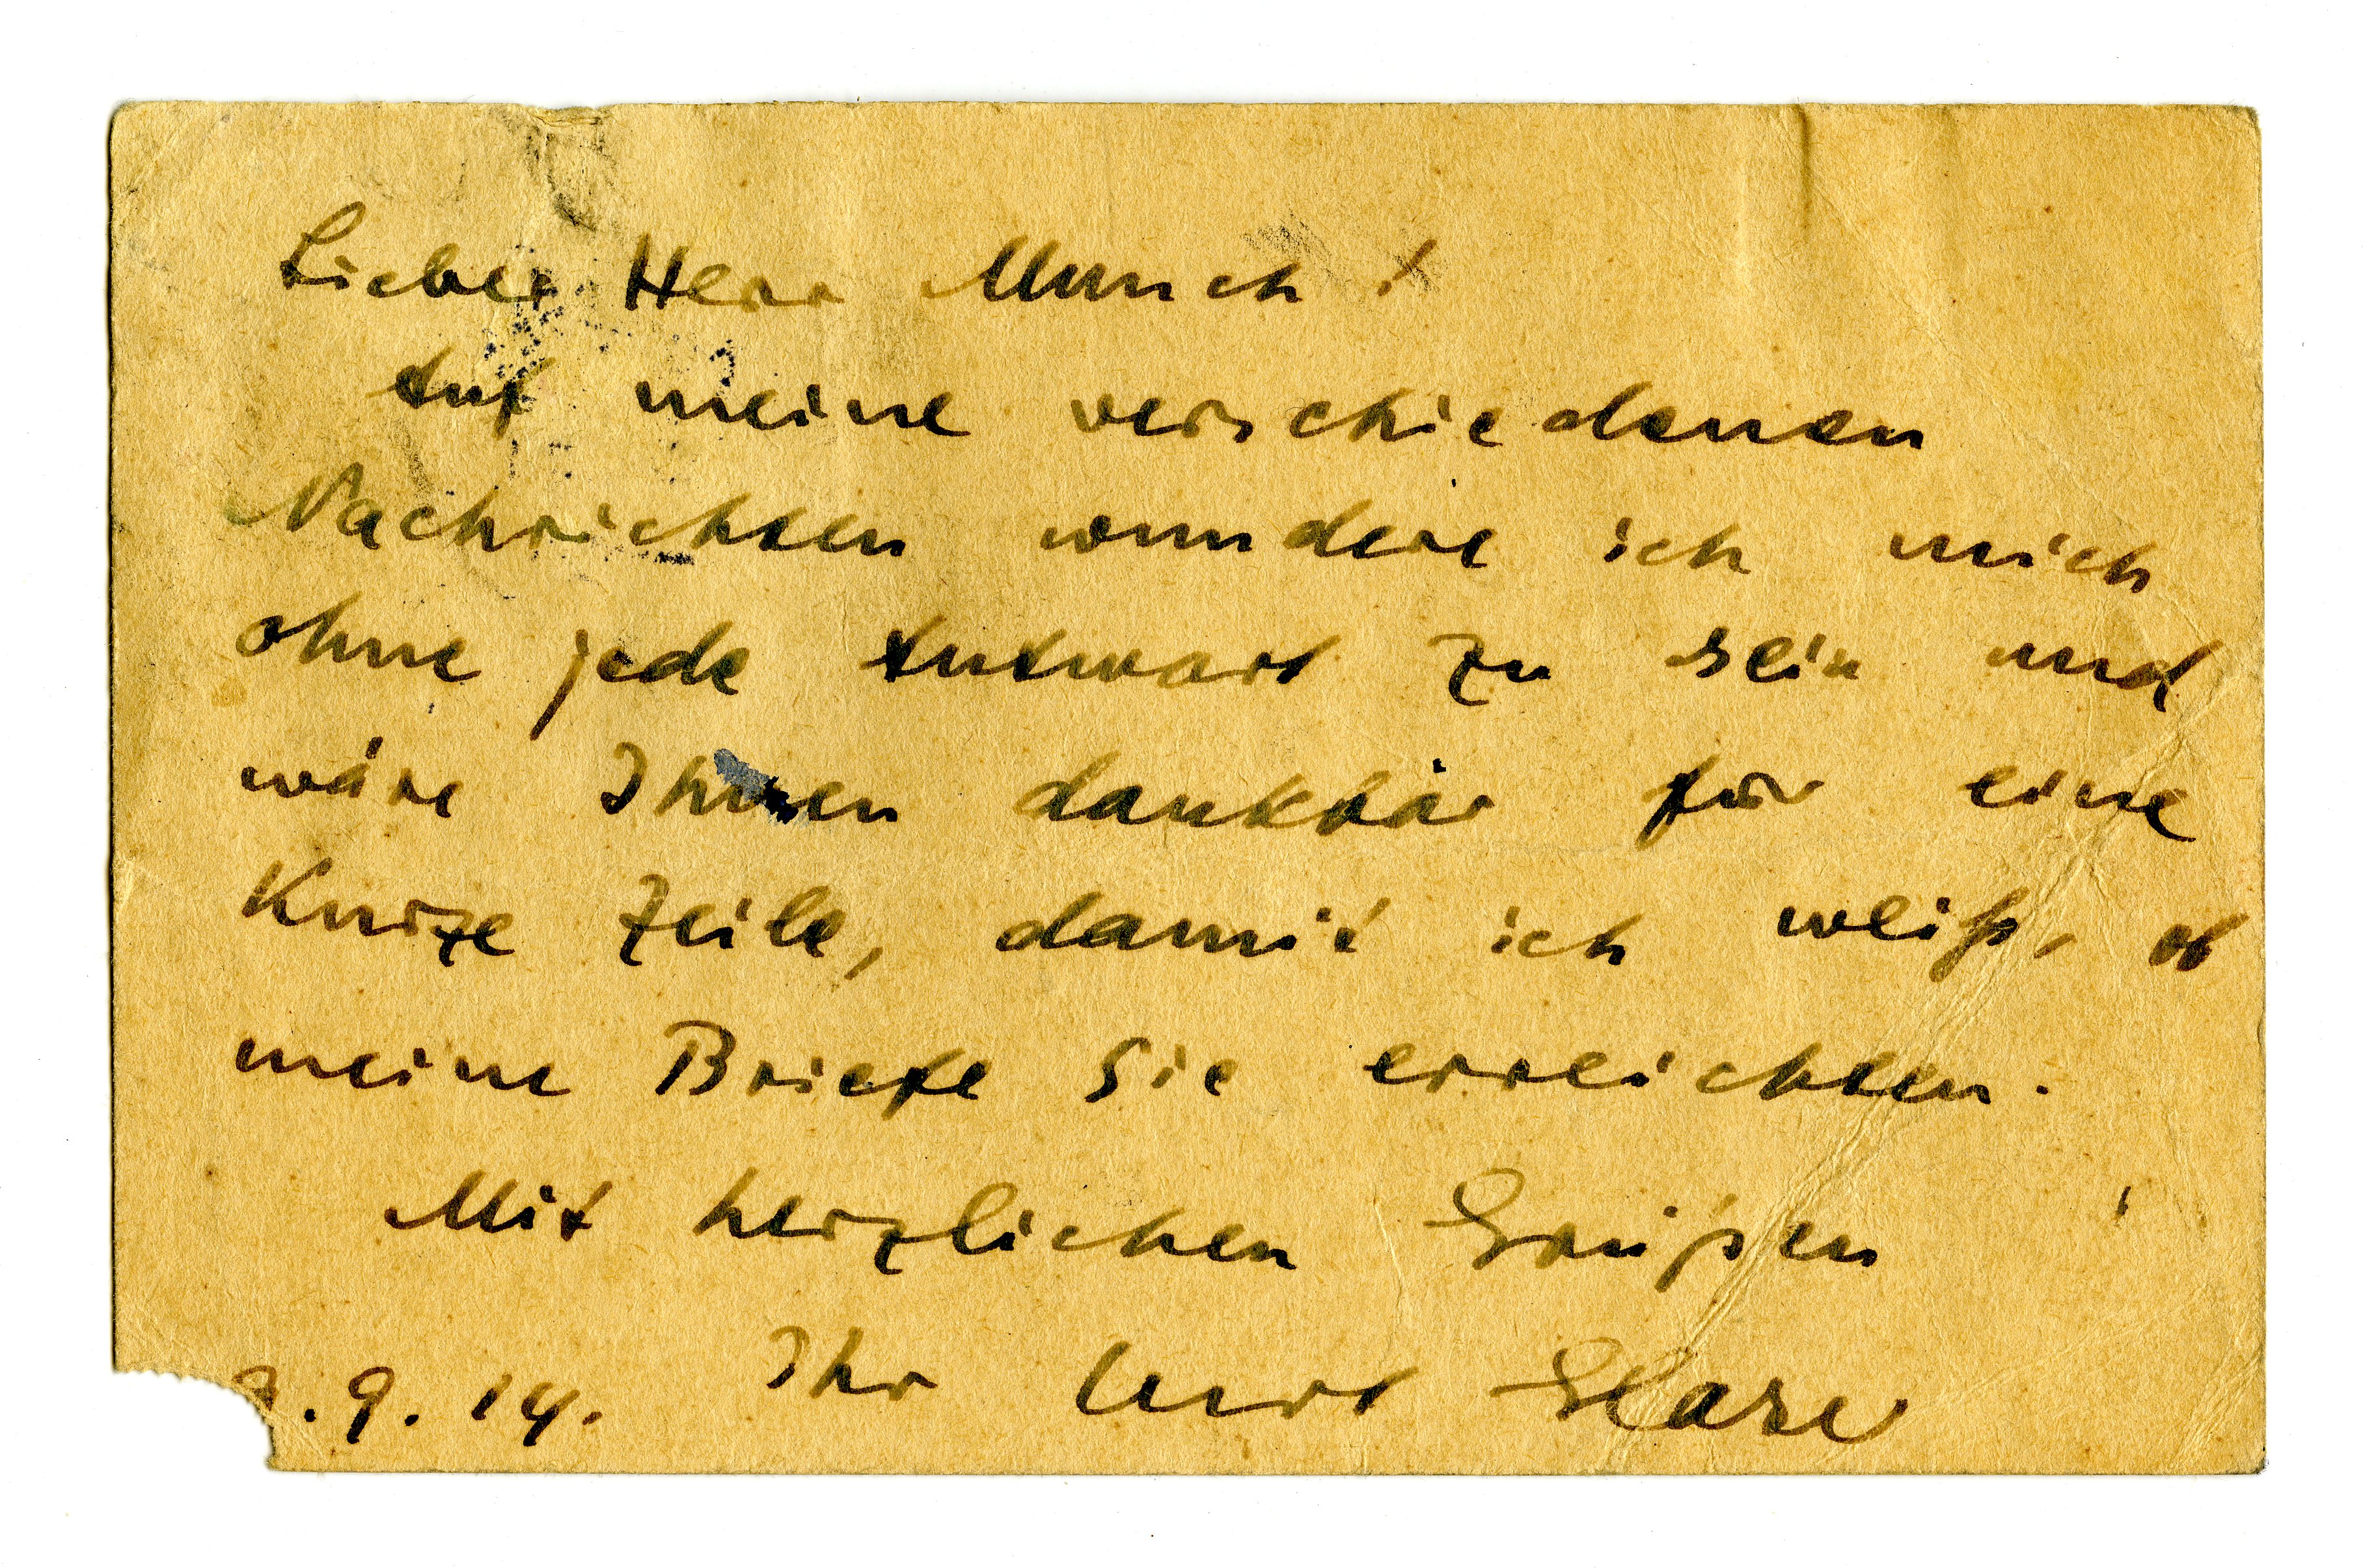 Lieber Herr Munch!
Auf meine verschiedenen
Nachrichten wundere ich mich
ohne jede Antwort zu sein und
wäre Ihnen dankbar für eine
Kurze Zeile, damit ich weiß, ob
meine Briefe Sie erreichten.
Mit herzlichen Grüßen
Ihr Curt Glaser
. 9. 14.